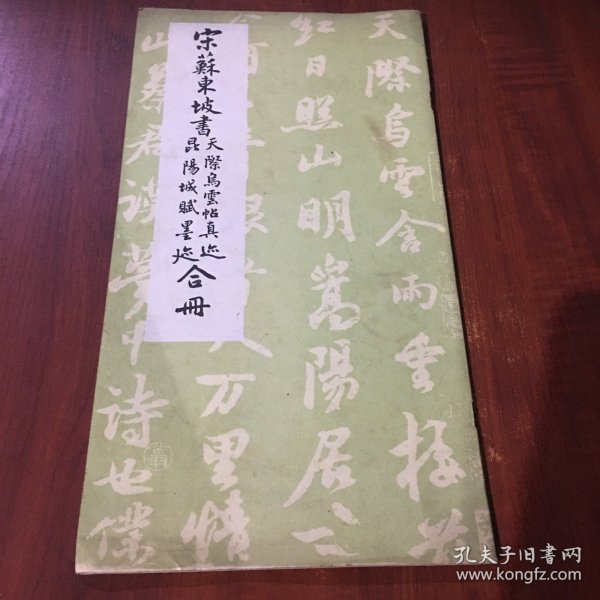 宋蘇東坡書
天際烏雲帖真迹
昆陽城賦墨迹
合冊
天際烏雲含雨重樓前
紅日照山明嵩陽居士
人万里情
此蔡君謨夢中詩也僕
孔夫子旧书网
www.kongfz.com